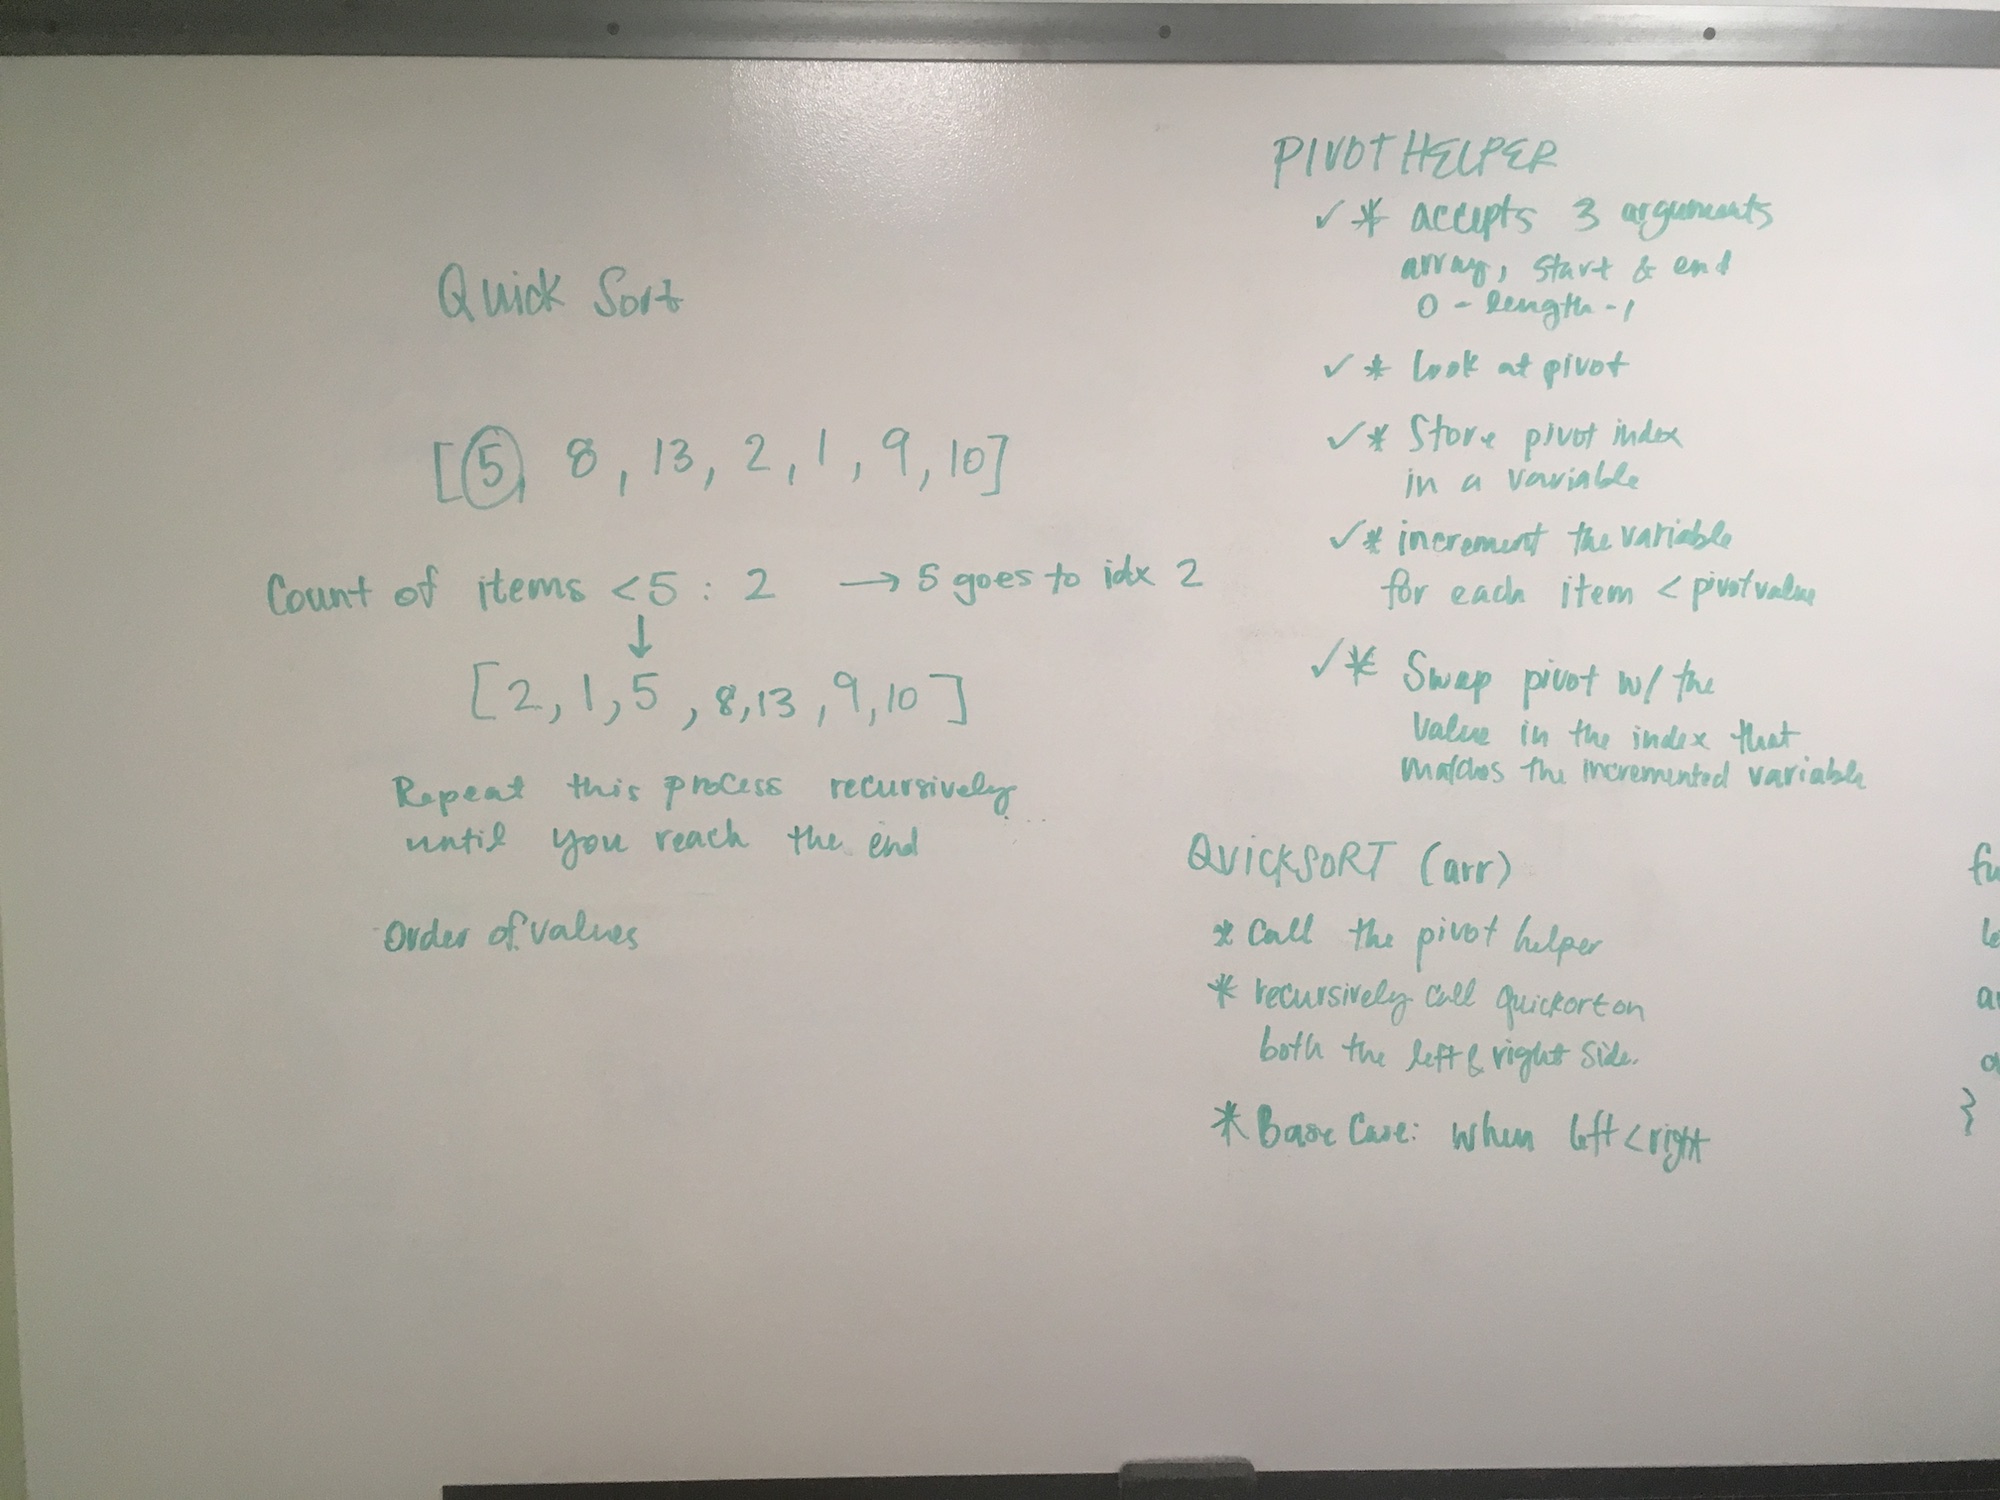 Quick Sort
[5, 8, 13, 2, 1, 9, 10]
Count of items <5 : 2 → 5 goes to idx 2
↓
[2, 1, 5, 8, 13, 9, 10]
Repeat this process recursively
until you reach the end
Order of values
PIVOT HELPER
✓ * accepts 3 arguments
array, start & end
0 - length -1
✓ * look at pivot
✓ * Store pivot index
in a variable
✓ * increment the variable
for each item < pivot value
✓ * Swap pivot w/ the
value in the index that
matches the incremented variable
QUICKSORT (arr)
* Call the pivot helper
* recursively call quickort on
both the left & right side.
* Base Case: when left < right
fu
le
a
}